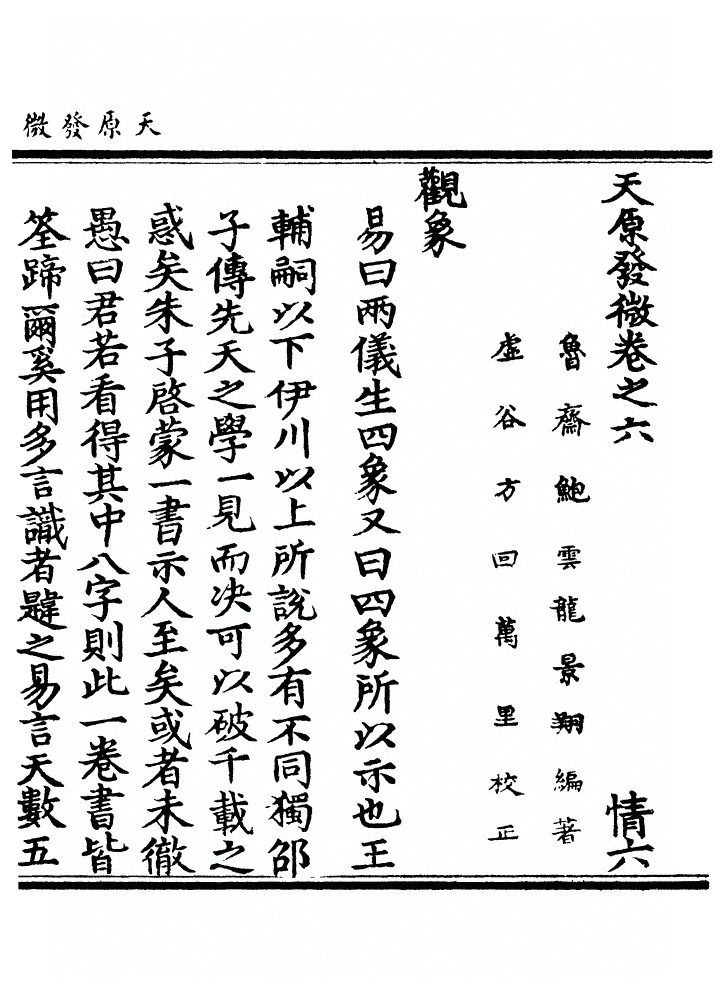 天原發微
天原發微卷之六 情六
魯齋鮑雲龍景翔編著
虛谷方回萬里校正
觀象
易曰兩儀生四象又曰四象所以示也王
輔嗣以下伊川以上所說多有不同獨邵
子傳先天之學一見而决可以破千載之
惑矣朱子啓蒙一書示人至矣或者未徹
愚曰君若看得其中八字則此一卷書皆
筌蹄爾奚用多言識者韙之易言天數五